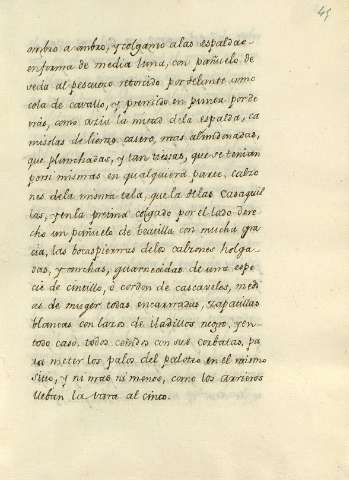 45
ombro a ombro, y colgando a las espaldas
en forma de media luna, con pañuelo de
seda al pescuezo retorcido por delante como
cola de cavallo, y prendido en punta por de
trás, como azia la mitad dela espalda, ca
misolas de lienzo casero, mas almidonadas,
que planchadas, y tan tiesas, que se tenian
por si mismas en qualquiera parte, calzo
nes dela misma tela, que la delas casaquil
las, y en la pretina colgado por el lado dere
cho un pañuelo de beatilla con mucha gra
cia, las bocaspiernas delos calzones holga
das, y anchas, guarnecidas de una espe
cie de cintillo, ò cordon de cascaveles, medi
as de muger todas encarnadas, zapatillas
blancas con lazos de iladillos negro, y en
todo caso, todos ceñidos con sus corbatas, pa
ra meter los palos del paloteo en el mismo
sitio, y ni mas ni menos, como los arrieros
lleban la vara al cinto.